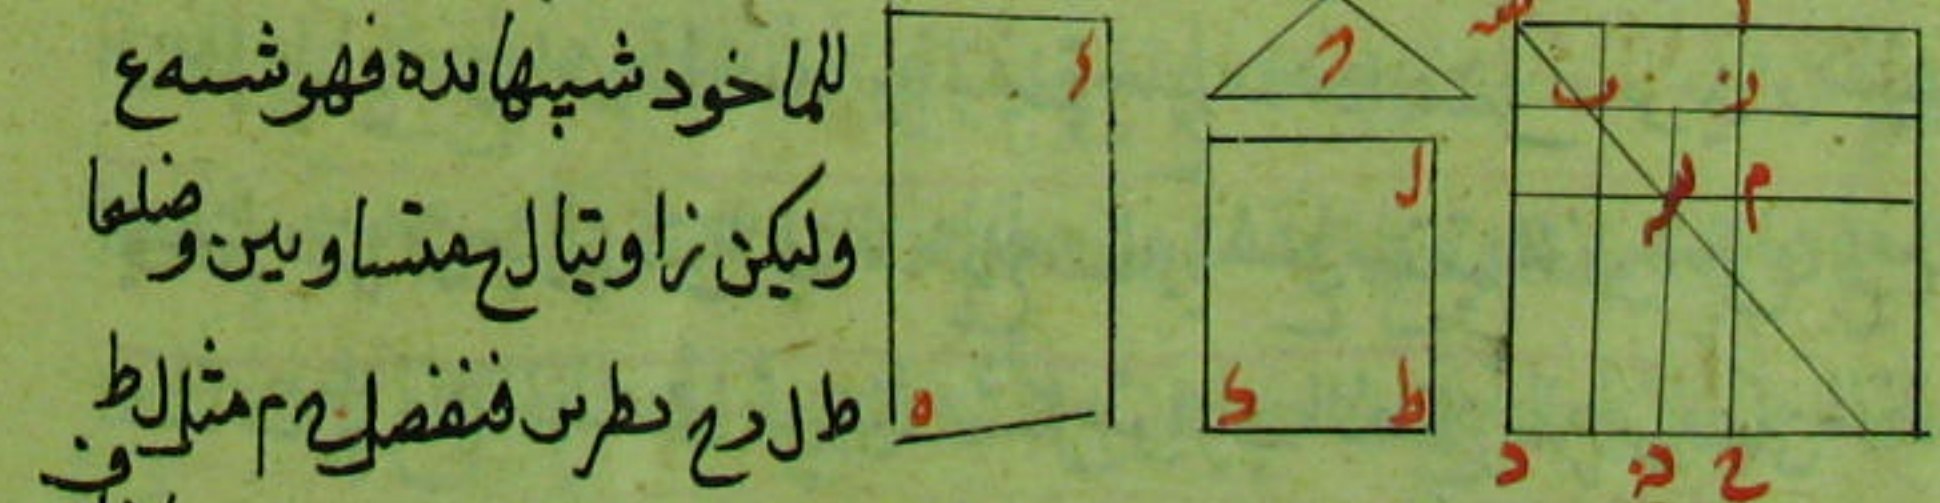 للما خود شبيها بده فهو شبه ع
وليكن زاويتا ل ح متساويين وضلعا
ط ل د ح نظيرين فنفصل ح م مثل ل ط
ر
ل
ط
ك
ه
م
ح
د